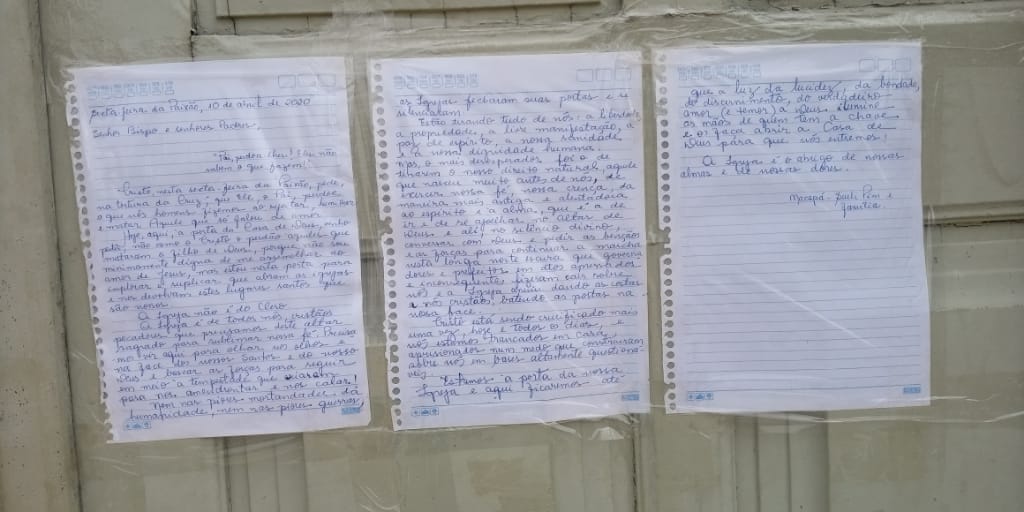 Sexta feira da Paixão, 10 de abril de 2020
Senhor Bispo e senhores Padres,
"Pai, perdoa-lhes! Eles não
sabem o que fazem!"
Cristo, nesta sexta-feira da Paixão, pede,
na tortura da Cruz, que Ele, o Pai, perdoe
o que nós homens fizemos: rejeitar,
e matar Aquele que só falou de amor.
Hoje, aqui, a porta da Casa de Deus, minha
não como o Cristo o perdão àqueles que
mataram o filho de Deus, porque não sou
minimamente digna de me assemelhar ao
amor de Jesus, mas estou nesta porta para
implorar e suplicar que abram as igrejas
e nos devolvam estes lugares santos que
são nossos.
A Igreja não é do Clero.
A Igreja é de todos nós cristãos
pecadores que precisamos deste altar
sagrado para sublimar nossa fé. Precisa-
mos vir aqui para olhar nos olhos e
na face dos nossos Santos e do nosso
Deus e buscar as forças para seguir
em meio a tempestade que criaram
para nos amedrontar e nos calar!
Nem nas piores mortandades da
humanidade, nem nas piores guerras
as Igrejas fecharam suas portas e se
silenciaram.
Estão tirando tudo de nós: a liberdade,
a propriedade, a livre manifestação, a
paz de espírito, a nossa sanidade
e a nossa dignidade humana.
Mas, o mais desesperador foi o de
tirarem o nosso direito natural, aquele
que nasceu muito antes de nós, de
exercer nossa fé, nossa crença, da
maneira mais antiga e alentadora
ao espírito e a alma, que é a de
ir e de se ajoelhar no altar de
Deus e ali, no silêncio divino,
conversar com Deus e pedir as bençãos
e as forças para continuar a marcha
nesta longa noite escura que governa-
dores e prefeitos em atos apressados
e inconsequentes fizeram cair sobre
nós e a Igreja apoiou dando as costas
a nós cristãos, batendo as portas na
nossa face.
Cristo está sendo crucificado mais
uma vez, hoje e todos os dias, e
nós estamos trancados em casa,
aprisionados num medo que construiram
sobre nós em bases altamente questioná-
veis.
Estamos a porta da nossa
Igreja e aqui ficaremos até
que a luz da lucidez, da bondade,
do discernimento, do verdadeiro
amor (e temor) a Deus, ilumine
as mãos de quem tem a chave
e os faça abrir a Casa de
Deus para que nós entremos!
A Igreja é o abrigo de nossas
almas e de nossas dores.
Macapá:
família